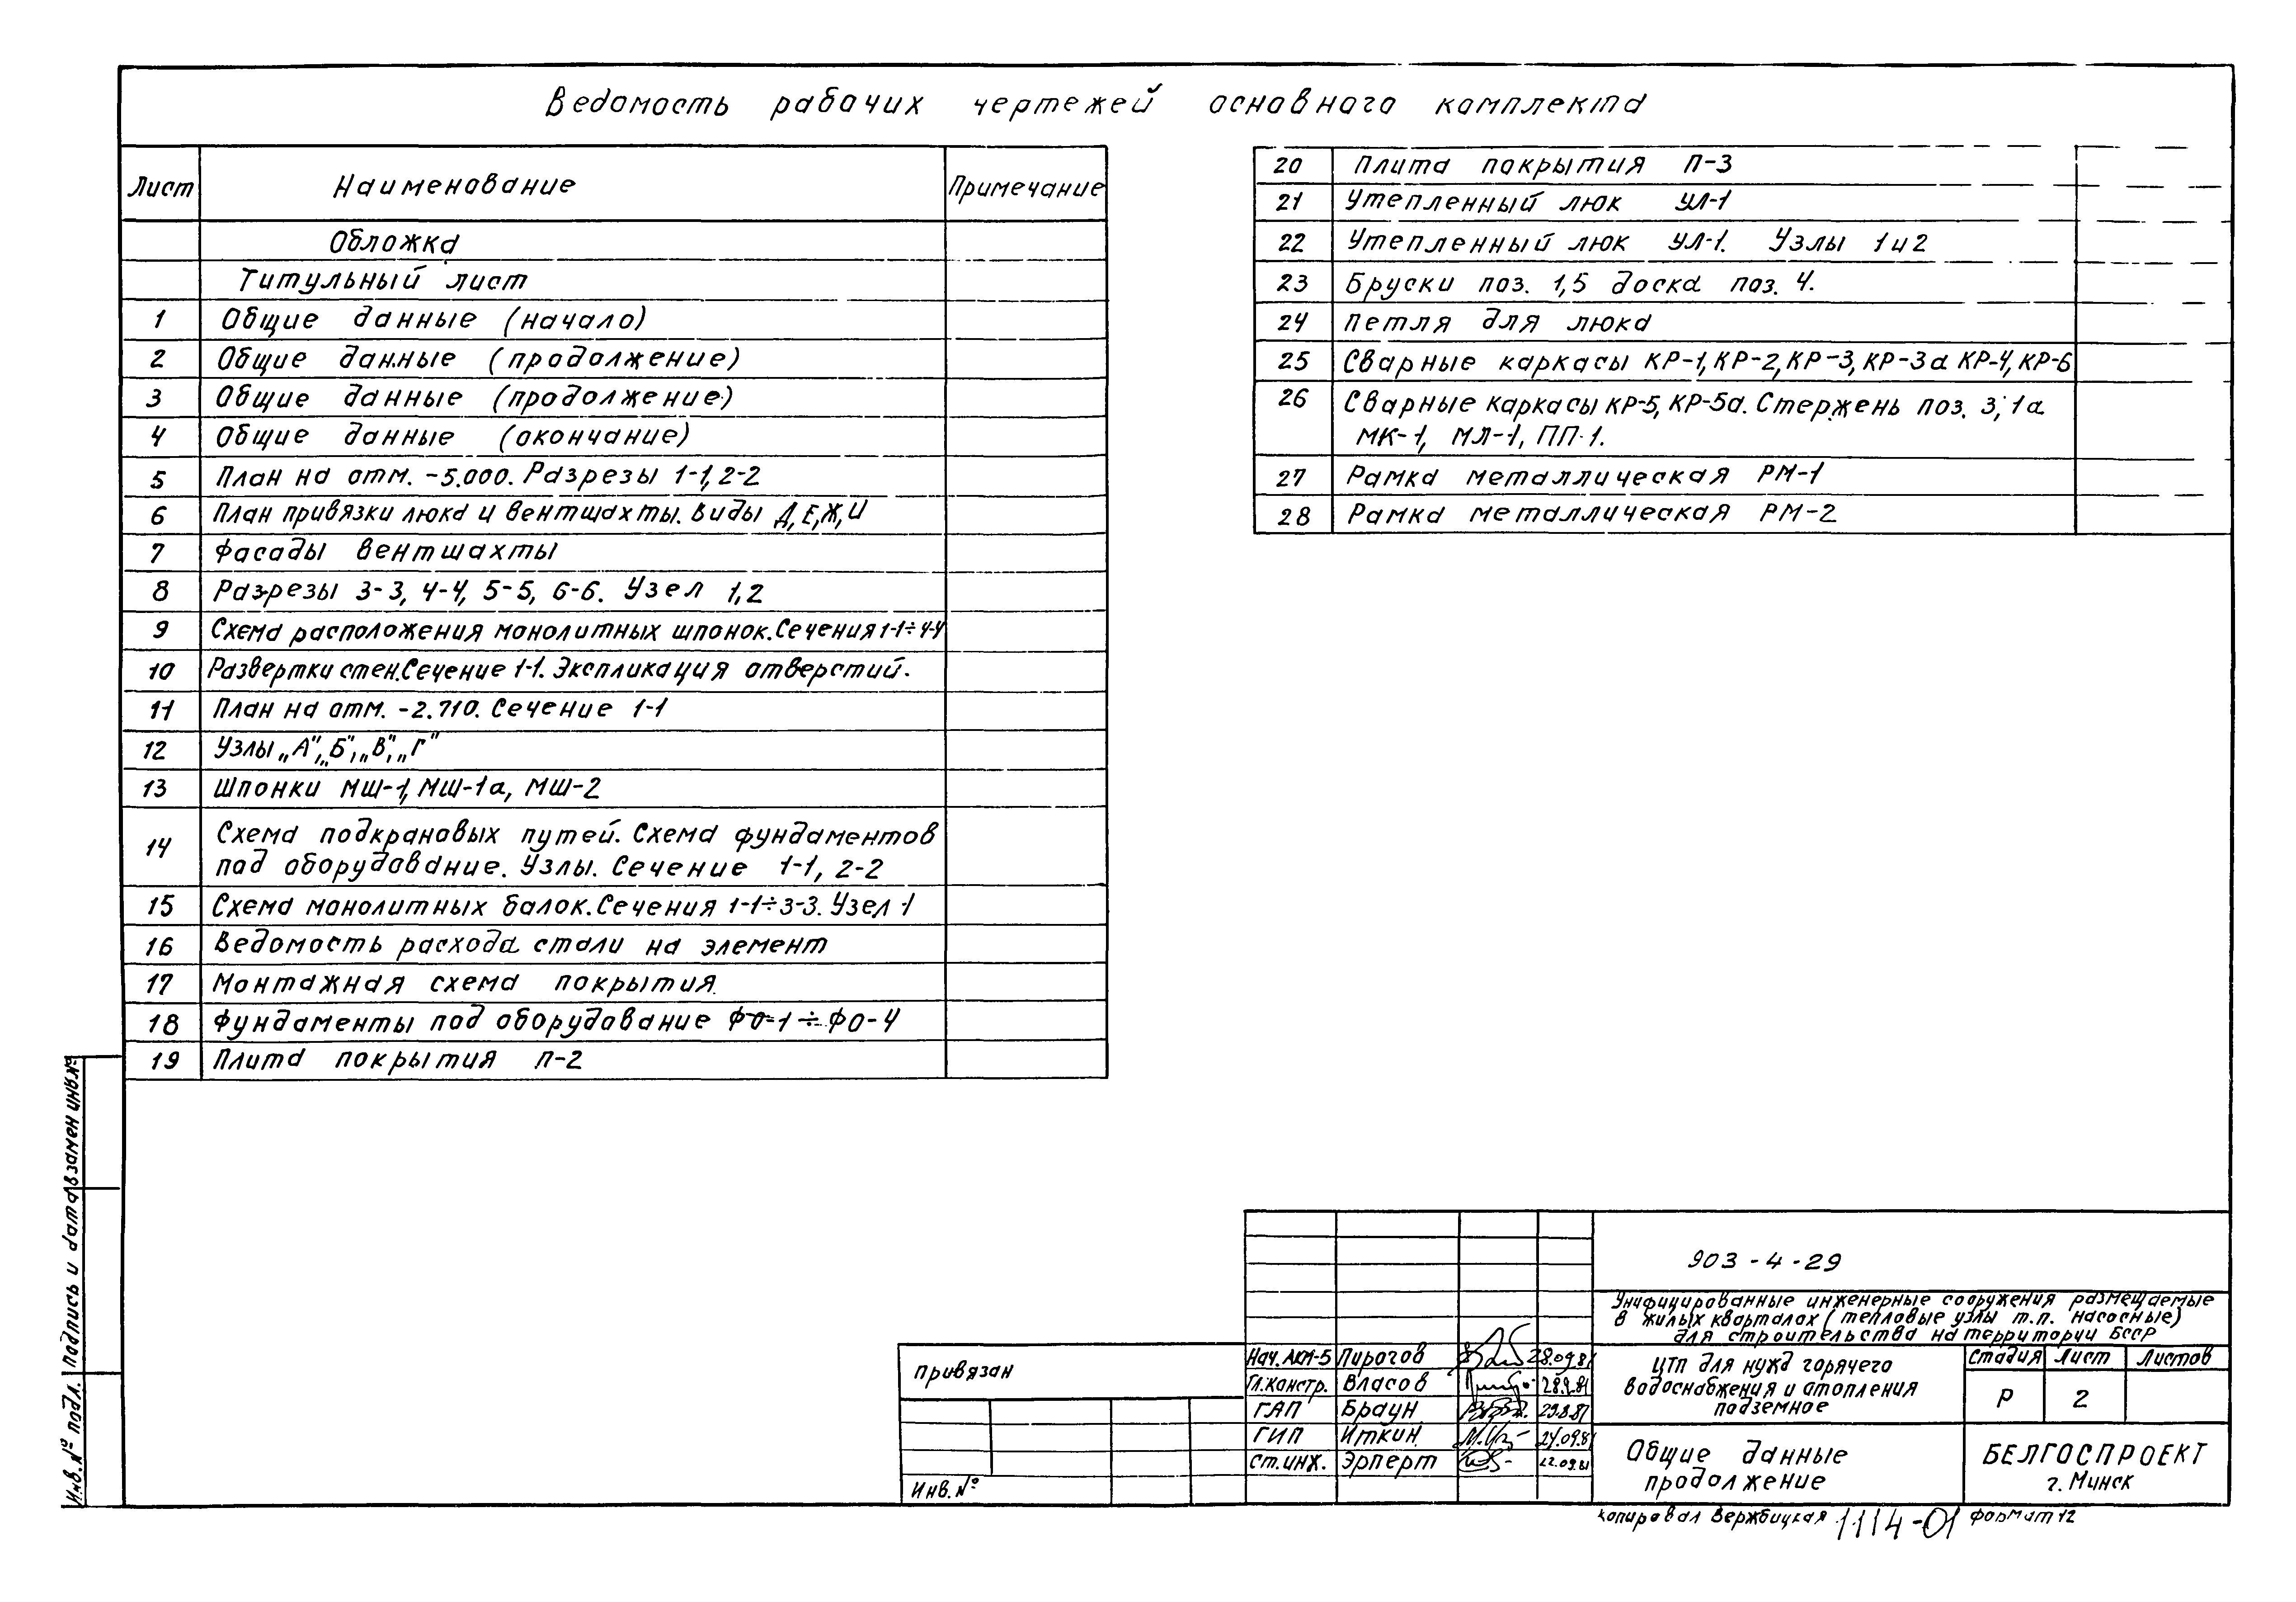 Ведомость рабочих чертежей основного комплекта
Лист Наименование Примечание
Обложка
Титульный лист
1 Общие данные (начало)
2 Общие данные (продолжение)
3 Общие данные (продолжение)
4 Общие данные (окончание)
5 План на отм. -5.000. Разрезы 1-1, 2-2
6 План привязки люка и вентшахты. Виды Д, Е, Ж, И
7 Фасады вентшахты
8 Разрезы 3-3, 4-4, 5-5, 6-6. Узел 1,2
9 Схема расположения монолитных шпонок. Сечения 1-1÷4-4
10 Развертки стен. Сечение 1-1. Экспликация отверстий.
11 План на отм. -2.710. Сечение 1-1
12 Узлы „А", „Б", „В", „Г"
13 Шпонки МШ-1, МШ-1а, МШ-2
14 Схема подкрановых путей. Схема фундаментов
под оборудование. Узлы. Сечение 1-1, 2-2
15 Схема монолитных балок. Сечения 1-1÷3-3. Узел 1
16 Ведомость расхода стали на элемент
17 Монтажная схема покрытия
18 Фундаменты под оборудование ФО-1÷ФО-4
19 Плита покрытия П-2
20 Плита покрытия П-3
21 Утепленный люк УЛ-1
22 Утепленный люк УЛ-1. Узлы 1и2
23 Бруски поз. 1,5 доска поз. 4.
24 Петля для люка
25 Сварные каркасы КР-1, КР-2, КР-3, КР-3а КР-4, КР-6
26 Сварные каркасы КР-5, КР-5а. Стержень поз. 3; 1а
МК-1, МЛ-1, ПП-1.
27 Рамка металлическая РМ-1
28 Рамка металлическая РМ-2
Инв. № подл. Подпись и дата Взамен инв.№
903-4-29
Унифицированные инженерные сооружения размещаемые
в жилых кварталах (тепловые узлы т.п. насосные)
для строительства на территории БССР
Привязан
Инв. №
Нач. АКМ-5 Пирогов 28.09.81
Гл.констр. Власов 28.9.81
ГАП Браун
ГИП Иткин 24.09.81
ст. инж. Эрперт 22.09.81
ЦТП для нужд горячего
водоснабжения и отопления
подземное
Стадия Лист Листов
Р 2
Общие данные
продолжение
БЕЛГОСПРОЕКТ
г. Минск
Копировал Вержбицкая 1114-01 Формат 12